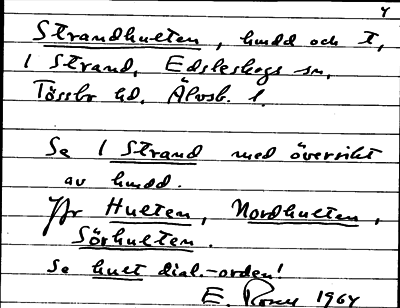 4
Strandhulten, hmdd och T,
1 Strand, Edsleskogs sn,
Tössbo hd. Älvsb. l.
Se 1 Strand med översikt
av hmdd.
Jfr Hulten, Nordhulten,
Sörhulten.
Se hult dial.-orden!
E. 1964